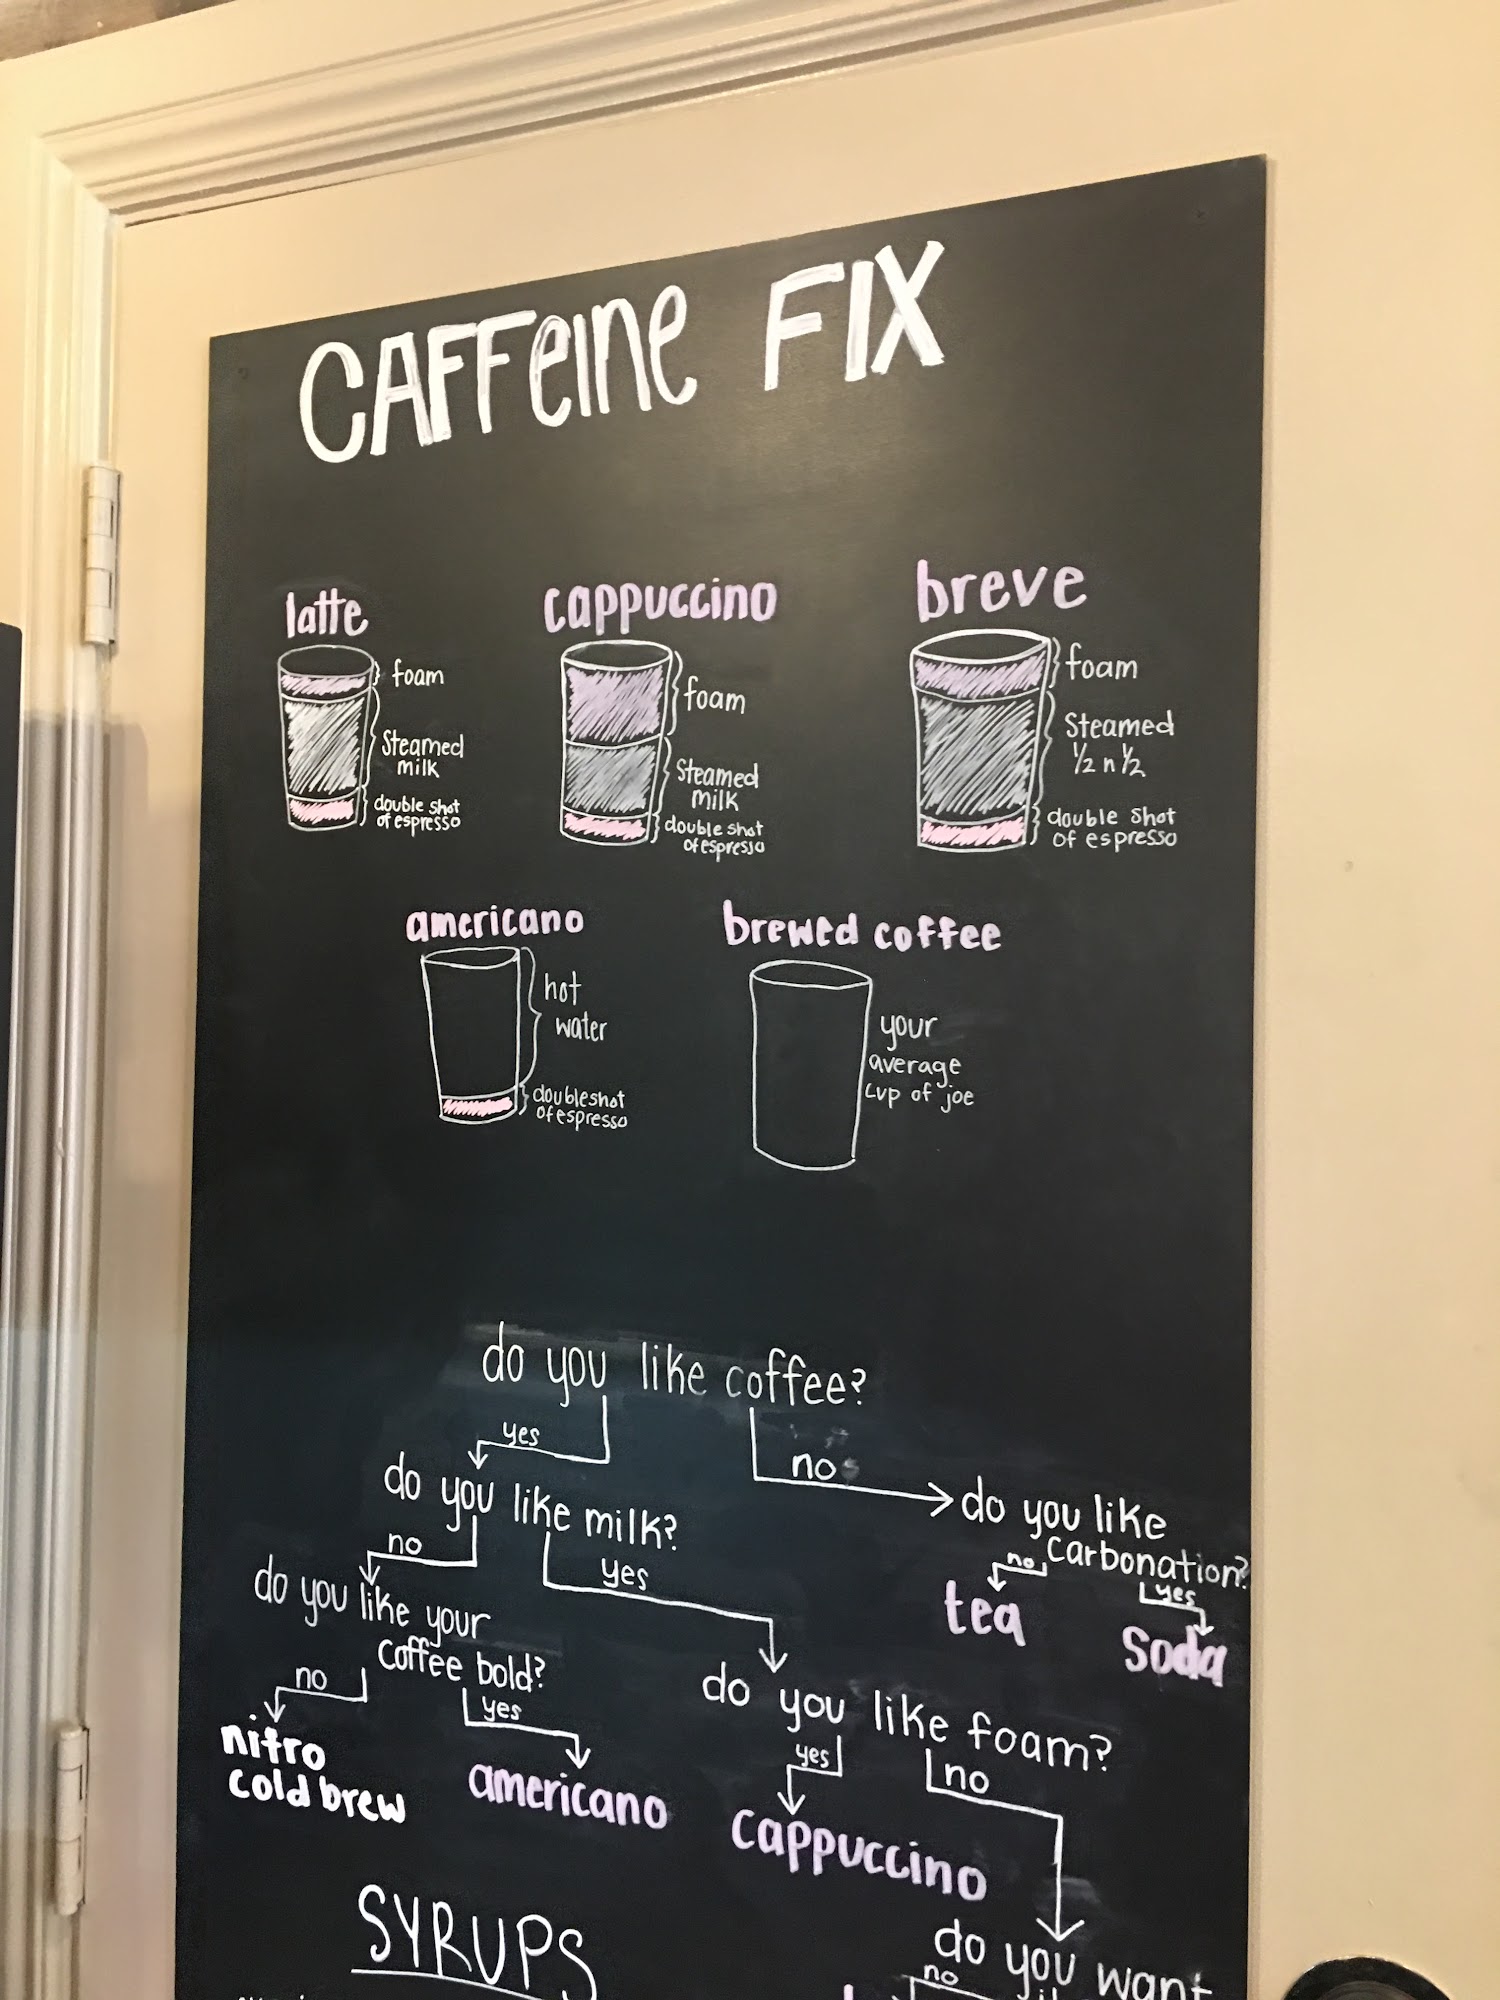 CAFFeINe FIX
latte
foam
Steamed
milk
double shot
of espresso
cappuccino
foam
Steamed
milk
double shot
of espresso
breve
foam
Steamed
½ n ½
double shot
of espresso
americano
hot
water
double shot
of espresso
brewed coffee
your
average
cup of joe
do you like coffee?
yes
no
do you like milk?
no
yes
do you like
carbonation?
no
yes
tea
soda
do you like your
coffee bold?
no
yes
nitro
cold brew
americano
do you like foam?
yes
no
cappuccino
do you want
no
SYRUPS